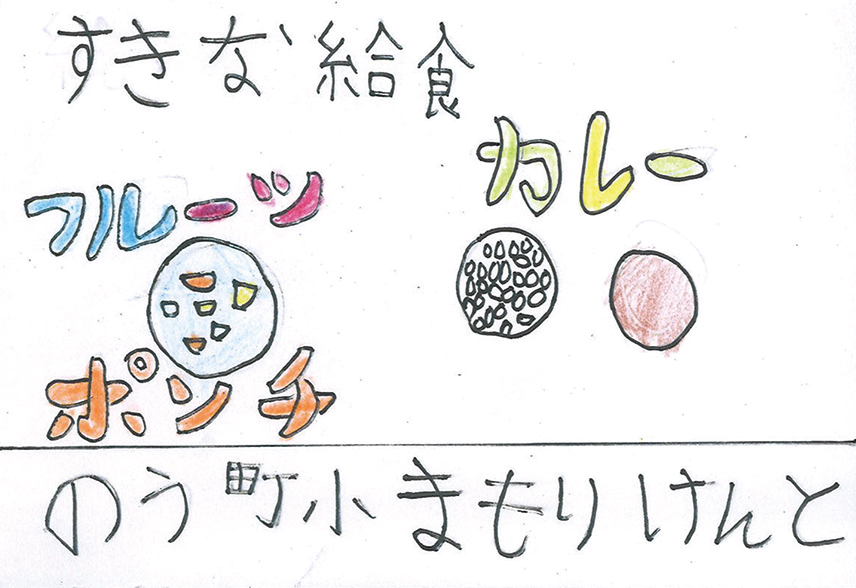 すきな給食
カレー
フルーツ
ポンチ
のう町小まもりけんと